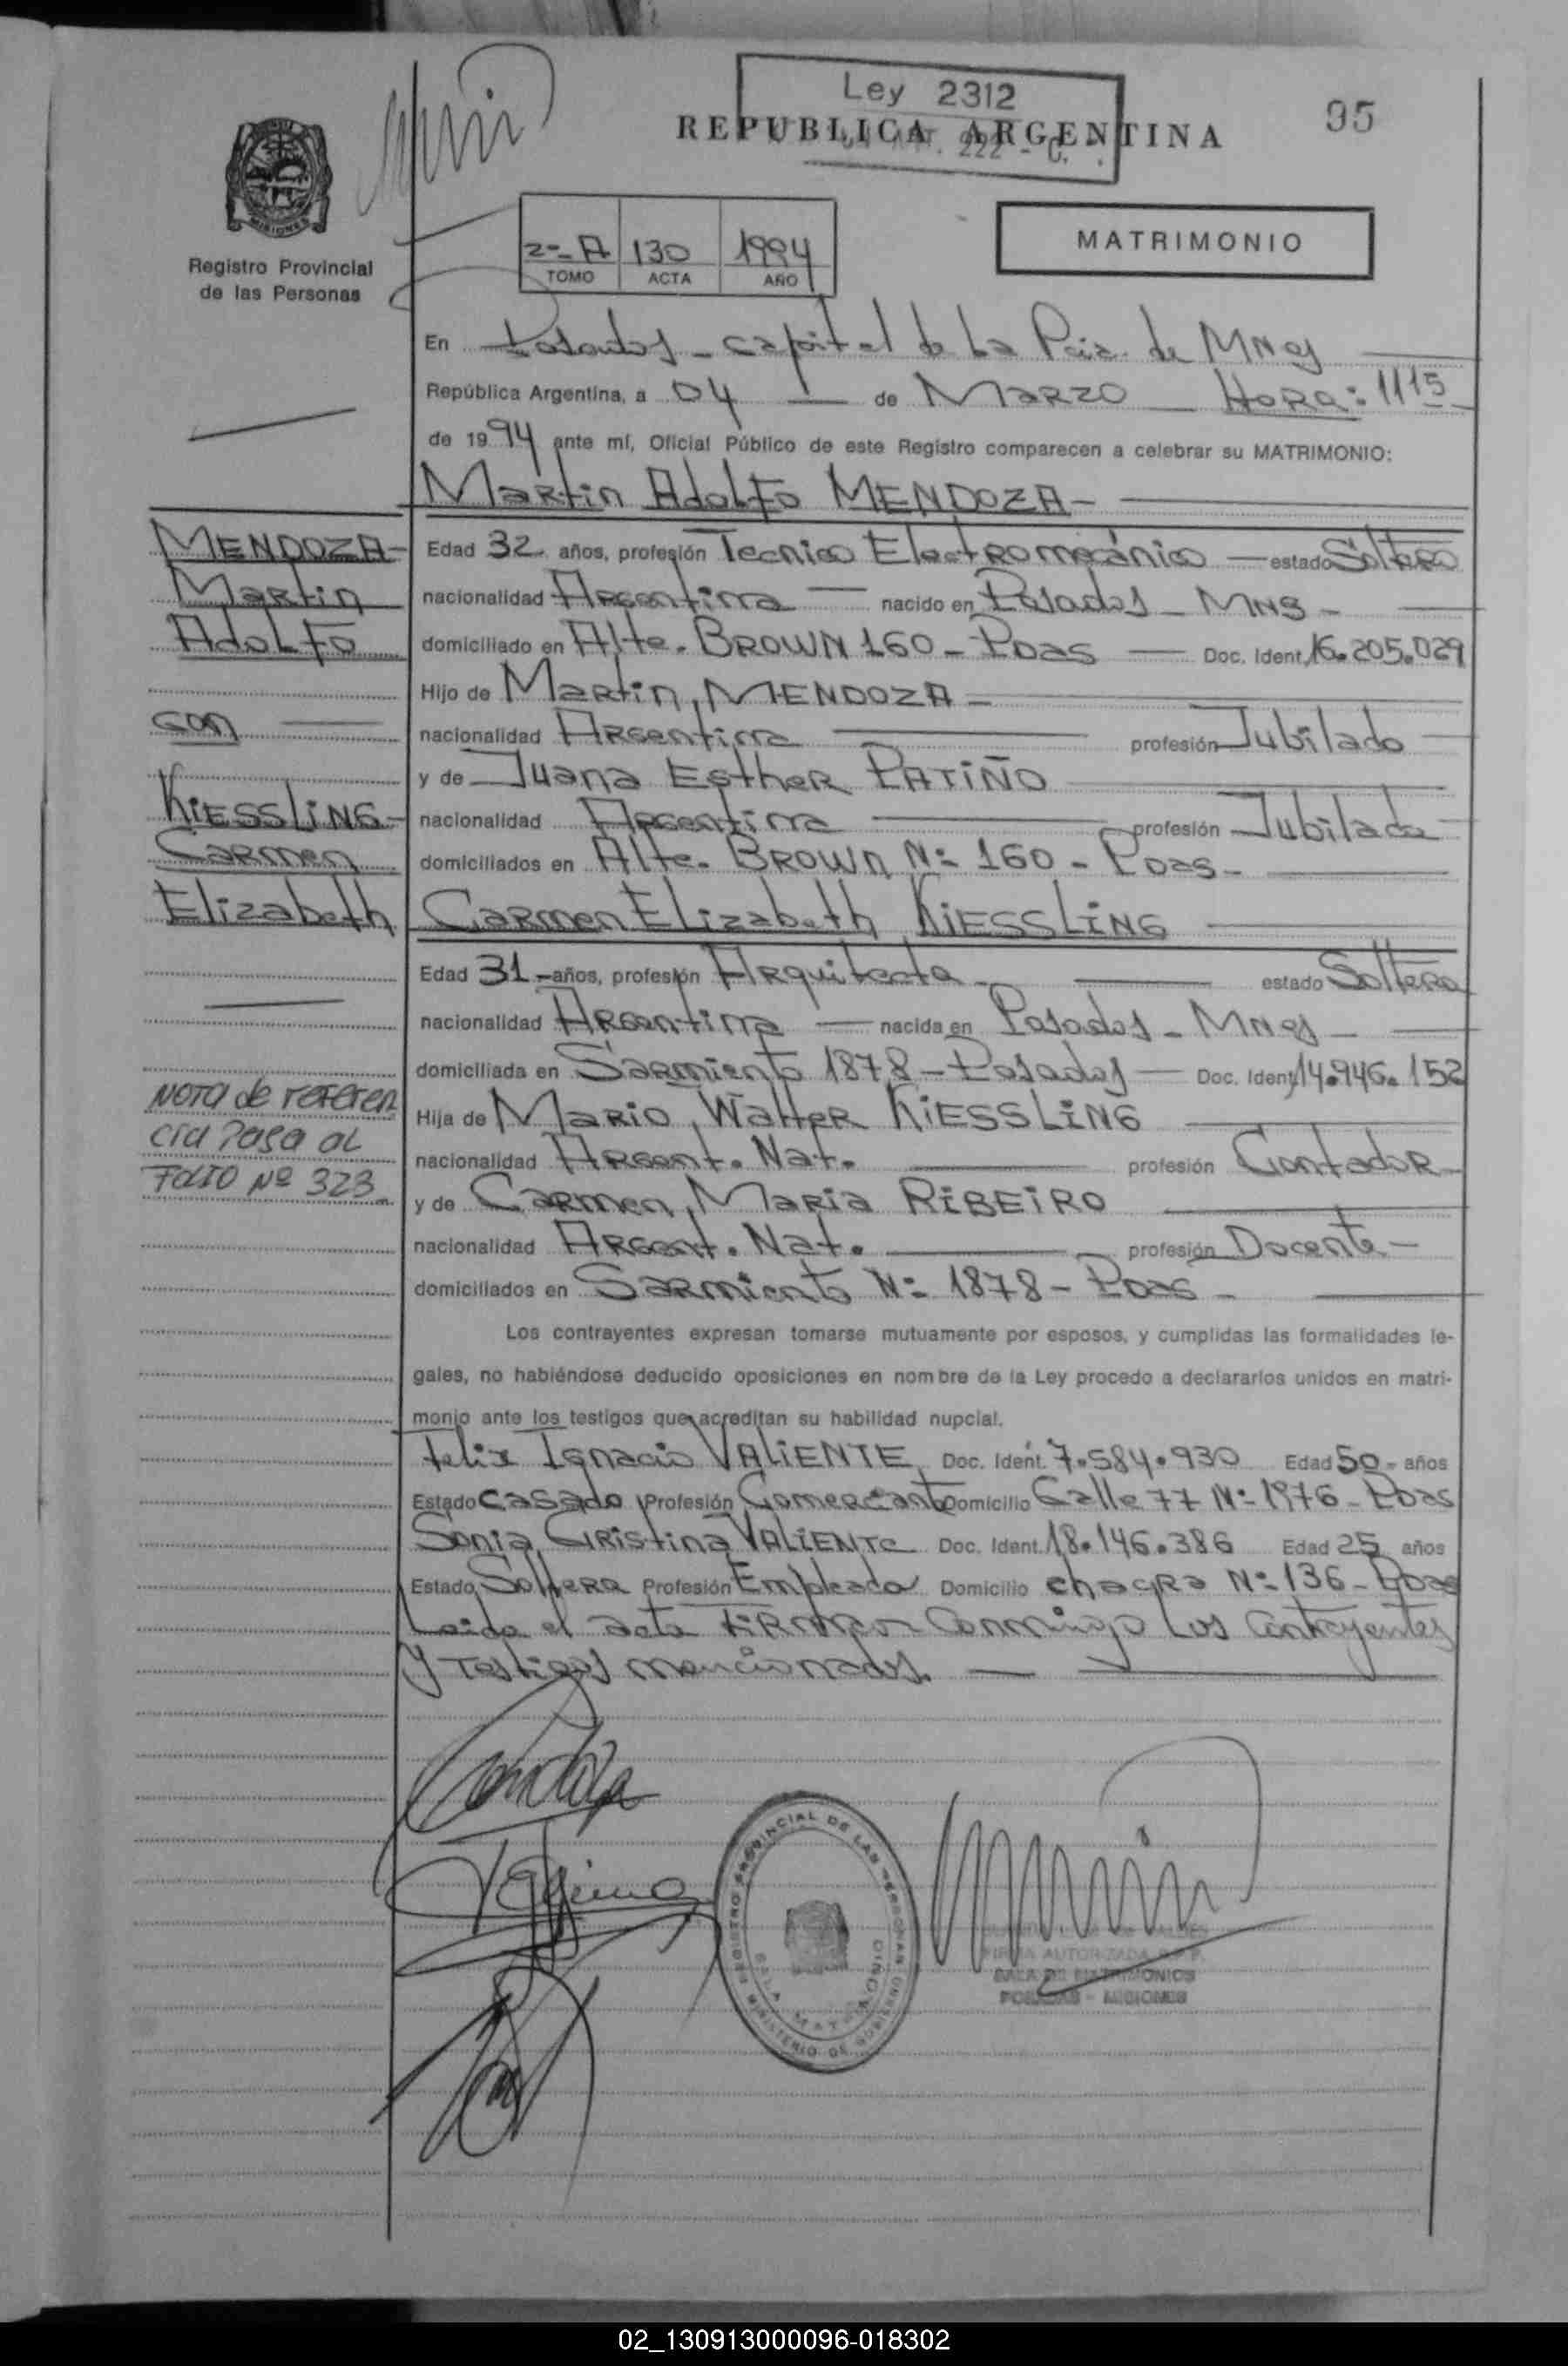 Ley 2312
REPUBLICA ARGENTINA
ART. 222 - C.
95
MISIONES
Registro Provincial
de las Personas
2º-A 130 1994
TOMO ACTA AÑO
MATRIMONIO
En Posadas - Capital de La Pcia. de Mnes
República Argentina, a 04 de Marzo Hora: 1115
de 1994 ante mí, Oficial Público de este Registro comparecen a celebrar su MATRIMONIO:
Martin Adolfo MENDOZA -
MENDOZA-
Martin
Adolfo
con
KIESSLING-
Carmen
Elizabeth
Edad 32 años, profesión Tecnico Electromecánico estado Soltero
nacionalidad Argentina nacido en Posadas - Mns -
domiciliado en Alte. BROWN 160 - Pdas Doc. Ident. 16.205.029
Hijo de Martin, MENDOZA -
nacionalidad Argentina profesión Jubilado
y de Juana Esther PATIÑO
nacionalidad Argentina profesión Jubilada
domiciliados en Alte. BROWN Nº 160 - Pdas -
Carmen Elizabeth KIESSLING
Edad 31 - años, profesión Arquitecta - estado Soltera
nacionalidad Argentina nacida en Posadas - Mnes -
domiciliada en Sarmiento 1878 - Posadas Doc. Ident. 14.946.152
Hija de Mario, Walter KIESSLING
nacionalidad Argent. Nat. profesión Contador
y de Carmen, Maria RIBEIRO
nacionalidad Argent. Nat. profesión Docente -
domiciliados en Sarmiento Nº 1878 - Pdas -
NOTA de referen
cia Pasa al
Folio Nº 323
Los contrayentes expresan tomarse mutuamente por esposos, y cumplidas las formalidades le-
gales, no habiéndose deducido oposiciones en nombre de la Ley procedo a declararlos unidos en matri-
monio ante los testigos que acreditan su habilidad nupcial.
Felix Ignacio VALIENTE Doc. Ident. 7.584.930 Edad 50 - años
Estado Casado Profesión Comerciante Domicilio Calle 77 Nº 1976 - Pdas
Sonia, Cristina VALIENTE Doc. Ident. 18.146.386 Edad 25 años
Estado Soltera Profesión Empleada Domicilio chacra Nº 136 - Pdas
Leida el acta Firman Conmigo Los Contrayentes
y Testigos mencionados.
REGISTRO PROVINCIAL DE LAS PERSONAS
MINISTERIO DE GOBIERNO
FIRMA AUTORIZADA
SALA DE MATRIMONIOS
POSADAS - MISIONES
02_130913000096-018302